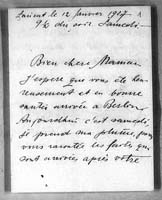 Lorient le 12 Janvier 1917
9h du soir Samedi
Bien chère Maman
J'espère que vous êtes heu-
reusement et en bonne
santée arrivée à
Aujourd'hui c'est samedi
si prend ma plume, pour
vous raconter les faits qui
sont arrivées après votre